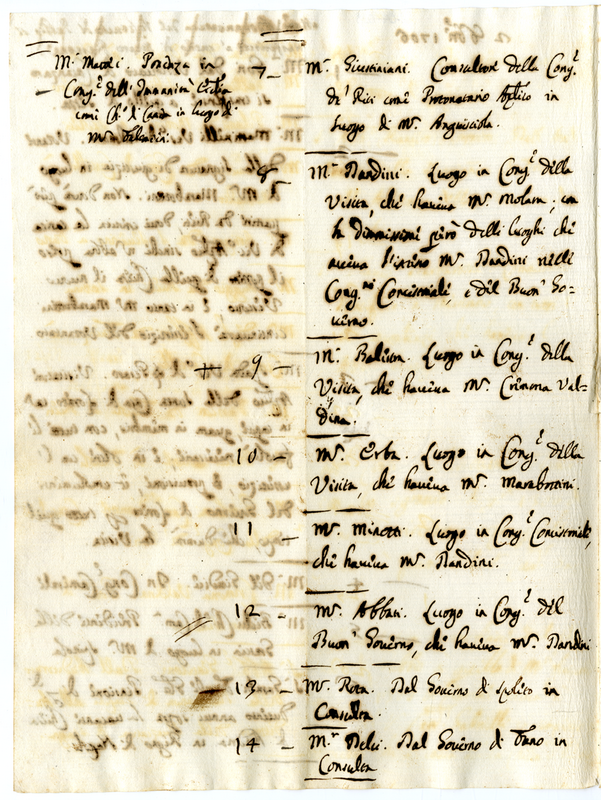 Mr. Mattei. Ponenza in
Cong.e dell'Immunità Eccl.ca
come Ch.o di Cam.a in luogo di
Mr.
7 - Mr. Giustiniani. Consultore della Cong.e
de' Riti come Protonotario Ap.lico in
luogo di Mr. Anguisciola.
8 Mr. Dandini. Luogo in Cong.e della
Visita, che haveva Mr. Molara; con
la dimissione però delli luoghi che
aveva l'istesso Mr. Dandini nelle
Cong.ni Concistoriale, e del Buon Go-
verno.
+ 9 - Mr. Balestra. Luogo in Cong.e della
Visita, che haveva Mr. Cremona Val-
dina.
10 - Mr. Erba. Luogo in Cong.e della
Visita, che haveva Mr. Marabottini.
11 - Mr. Minotti. Luogo in Cong.e Concistoriale,
che haveva Mr. Dandini.
12 - Mr. Abbati. Luogo in Cong.e del
Buon Governo, che haveva Mr. Dandini
13 - Mr. Rota. Dal Governo di Spoleto in
Consulta.
14 - Mr. Delci. Dal Governo di Fano in
Consulta